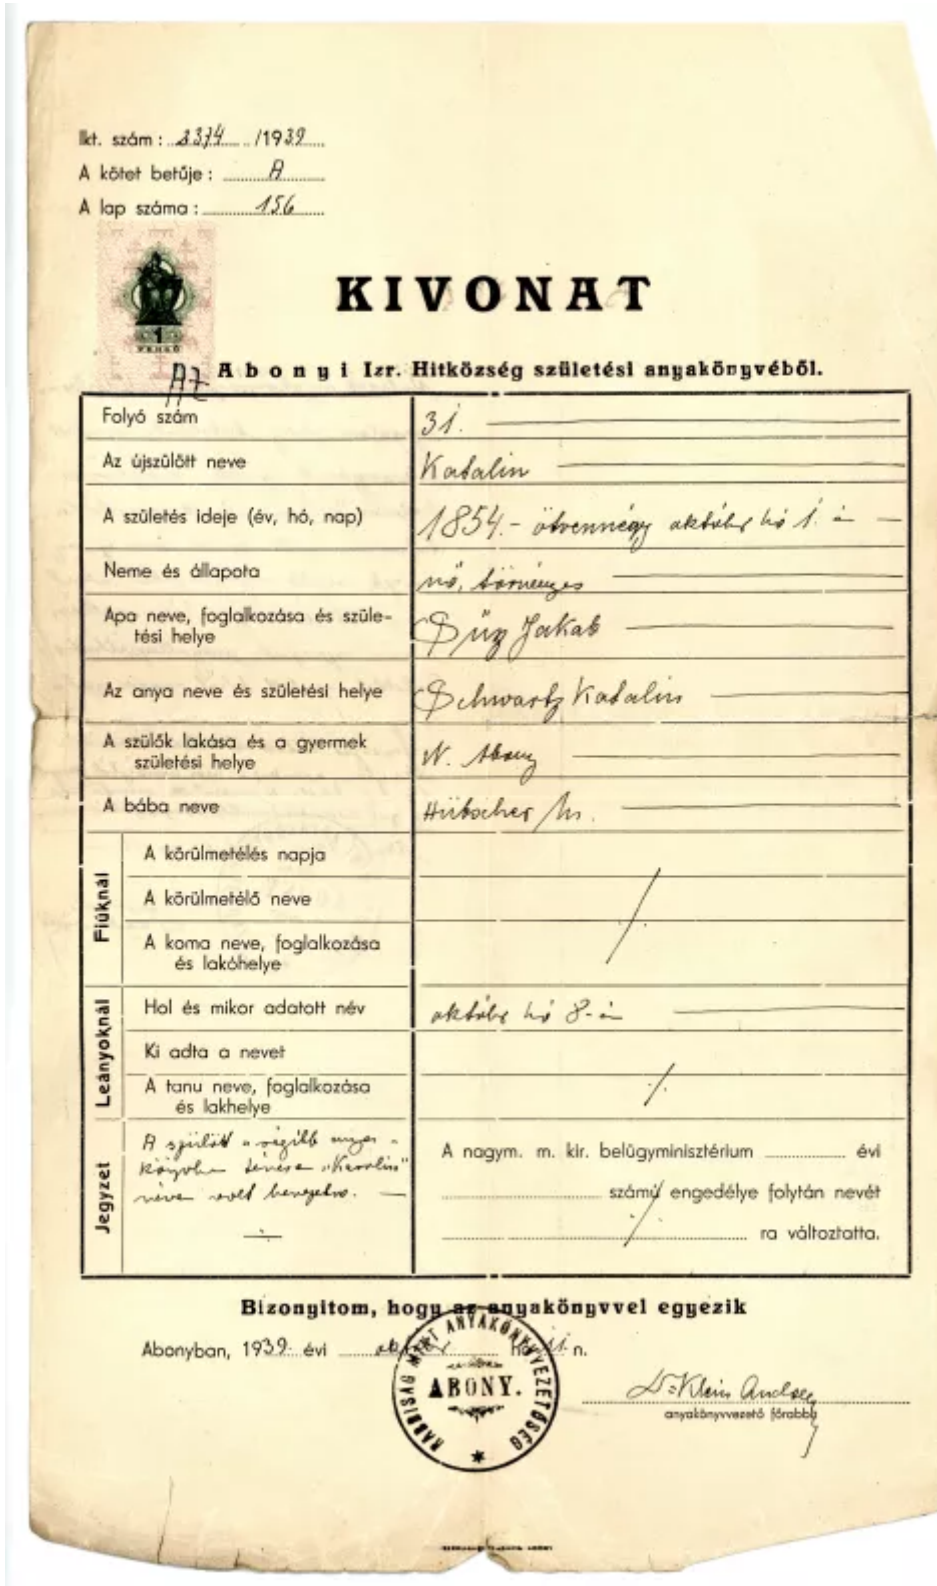 Ikt. szám: 3374 /1939
A kötet betűje: A
A lap száma: 156
1
PENGŐ
KIVONAT
Az Abonyi Izr. Hitközség születési anyakönyvéből.
Folyó szám 31.
Az újszülött neve Katalin
A születés ideje (év, hó, nap) 1854.- ötvennégy október hó 1.-én
Neme és állapota nő, törvényes
Apa neve, foglalkozása és szüle-
tési helye Süsz Jakab
Az anya neve és születési helye Schwartz Katalin
A szülők lakása és a gyermek
születési helye N. Abony
A bába neve Hübscher M.
Fiúknál
A körülmetélés napja
A körülmetélő neve
A koma neve, foglalkozása
és lakóhelye
Leányoknál
Hol és mikor adatott név október hó 8-án
Ki adta a nevet
A tanu neve, foglalkozása
és lakhelye
Jegyzet
A szülött a régibb anya-
könyvben "Karolin"
néven volt bevezetve.
A nagym. m. kir. belügyminisztérium évi
számú engedélye folytán nevét
ra változtatta.
Bizonyitom, hogy az anyakönyvvel egyezik
Abonyban, 1939. évi október hó 11. n.
RABBISÁG MINT ANYAKÖNYVVEZETŐSÉG
ABONY.
Dr Klein Andor
anyakönyvvezető főrabbi